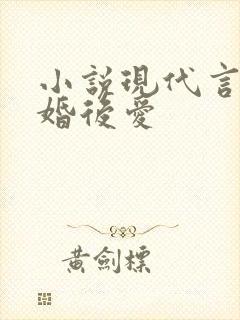 小說現代言
婚後愛
黃劍標